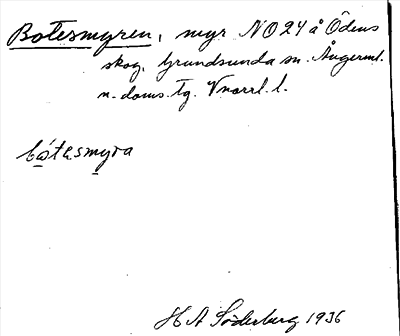 Botesmyren, myr NO24 å Ödens
skog, Grundsunda sn. Ångerml.
n. doms. tg. Vnorrl. l.
bótesmyra
H A Söderberg 1936